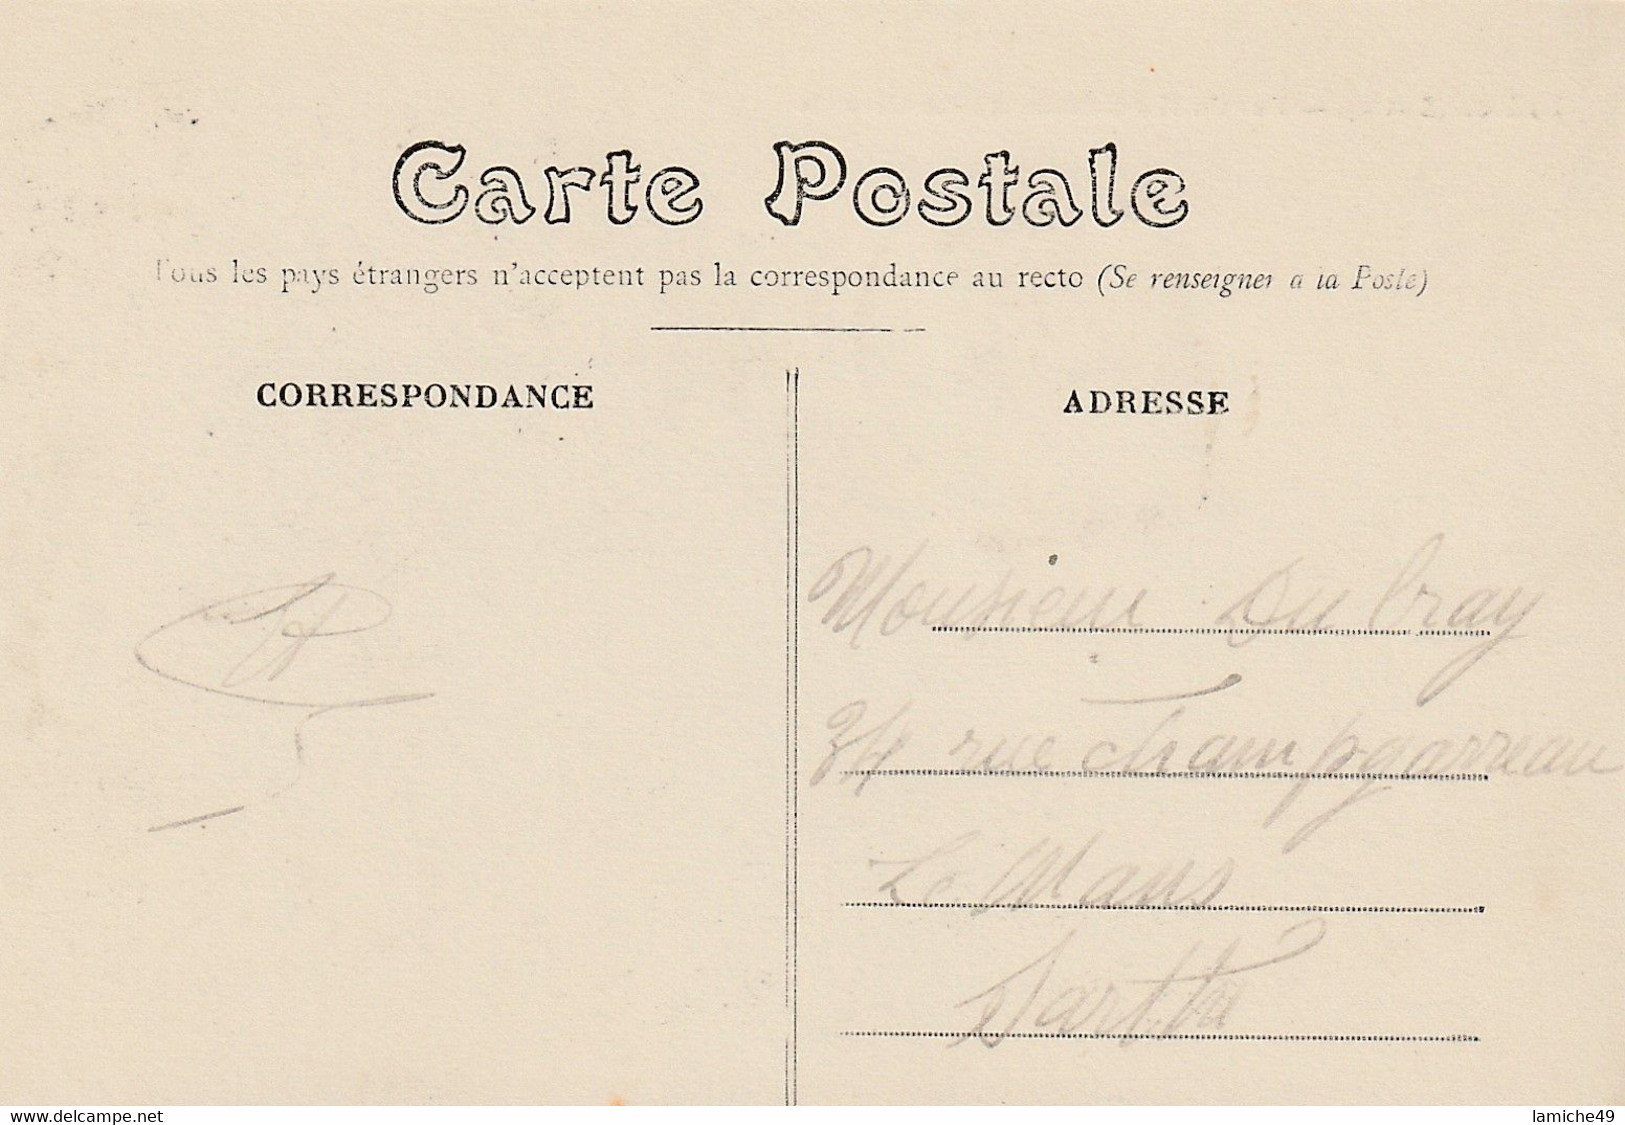 Carte Postale
Tous les pays étrangers n'acceptent pas la correspondance au recto (Se renseigner a la Poste)
CORRESPONDANCE
ADRESSE
Monsieur Dubray
34 rue Champgarreau
Le Mans
Sarthe
www.delcampe.net
lamiche49